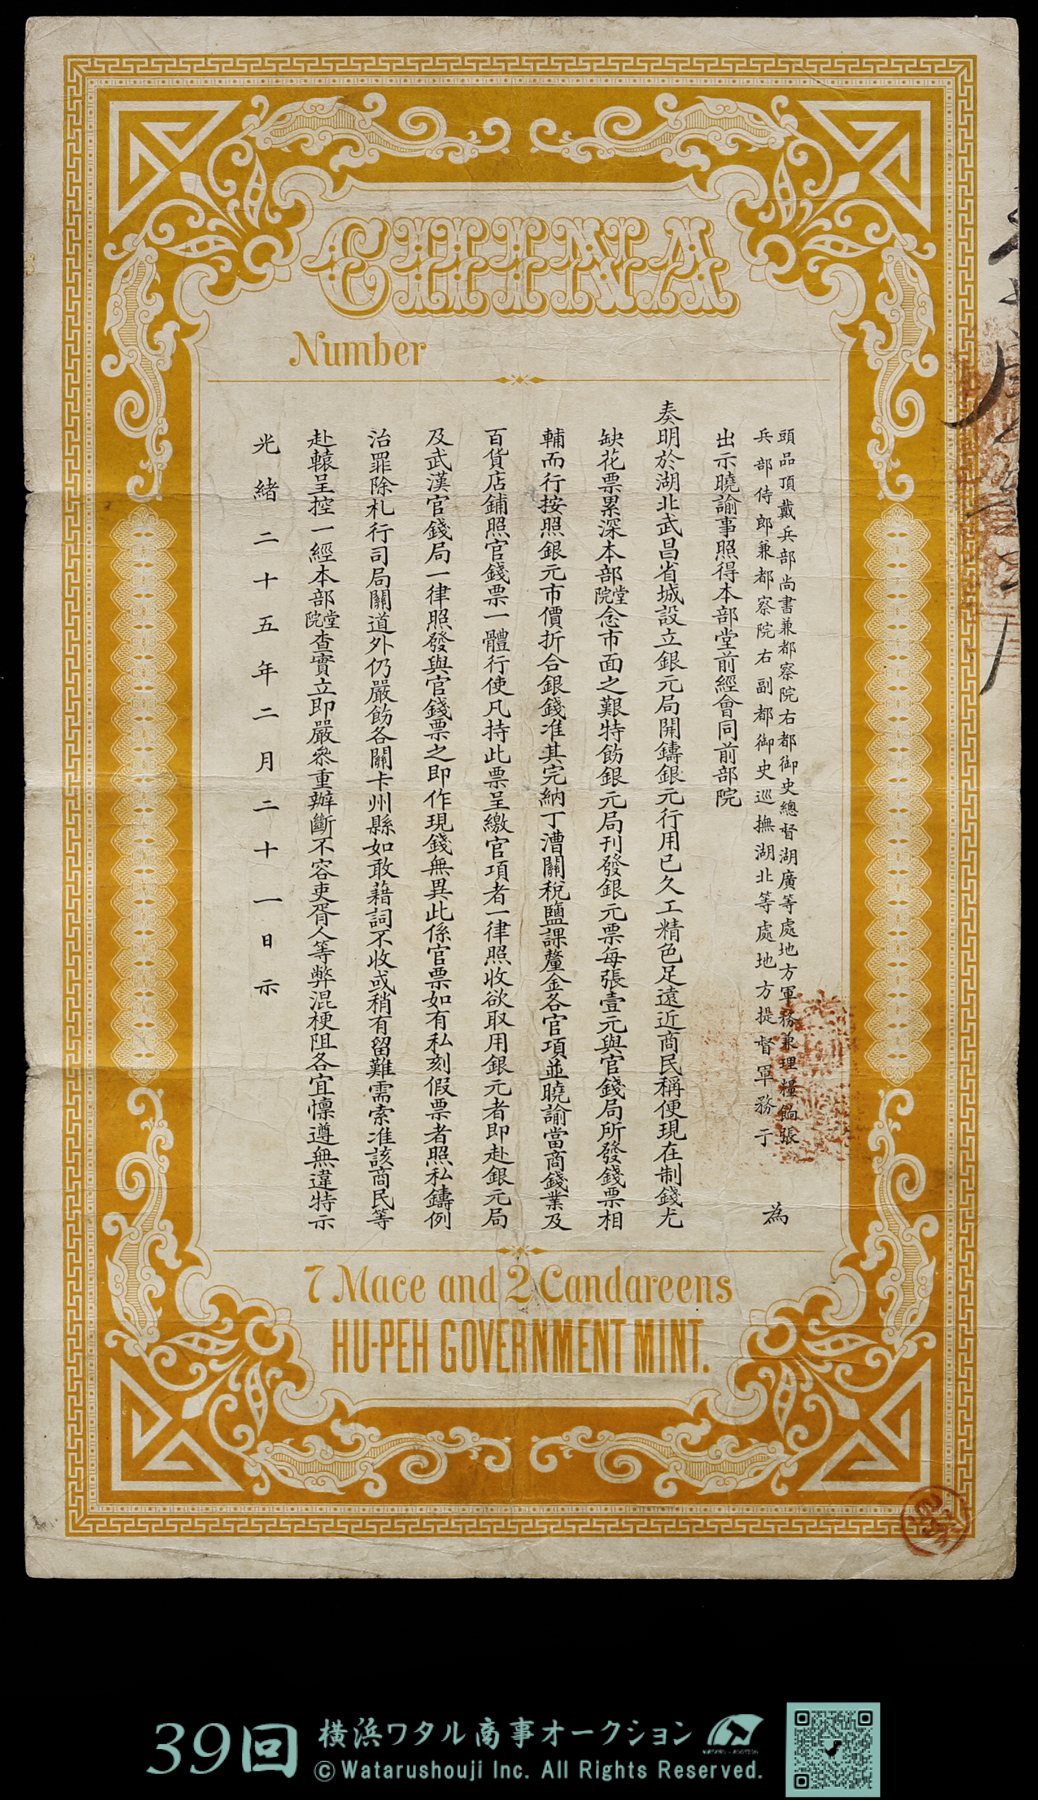 CHINA
Number
頭品頂戴兵部尚書兼都察院右都御史總督湖廣等處地方軍務兼理糧餉張
兵部侍郎兼都察院右副都御史巡撫湖北等處地方提督軍務于
為
出示曉諭事照得本部堂前經會同前部院
奏明於湖北武昌省城設立銀元局開鑄銀元行用已久工精色足遠近商民稱便現在制錢尤
缺花票累深本部堂院念市面之艱特飭銀元局刊發銀元票每張壹元與官錢局所發錢票相
輔而行按照銀元市價折合銀錢准其完納丁漕關稅鹽課釐金各官項並曉諭當商錢業及
百貨店鋪照官錢票一體行使凡持此票呈繳官項者一律照收欲取用銀元者即赴銀元局
及武漢官錢局一律照發與官錢票之即作現錢無異此係官票如有私刻假票者照私鑄例
治罪除札行司局關道外仍嚴飭各關卡州縣如敢藉詞不收或稍有留難需索准該商民等
赴轅呈控一經本部堂院查實立即嚴叅重辦斷不容吏胥人等弊混梗阻各宜懍遵無違特示
光緒二十五年二月二十一日示
7 Mace and 2 Candareens
HU-PEH GOVERNMENT MINT.
39回 横浜ワタル商事オークション
©Watarushouji Inc. All Rights Reserved.